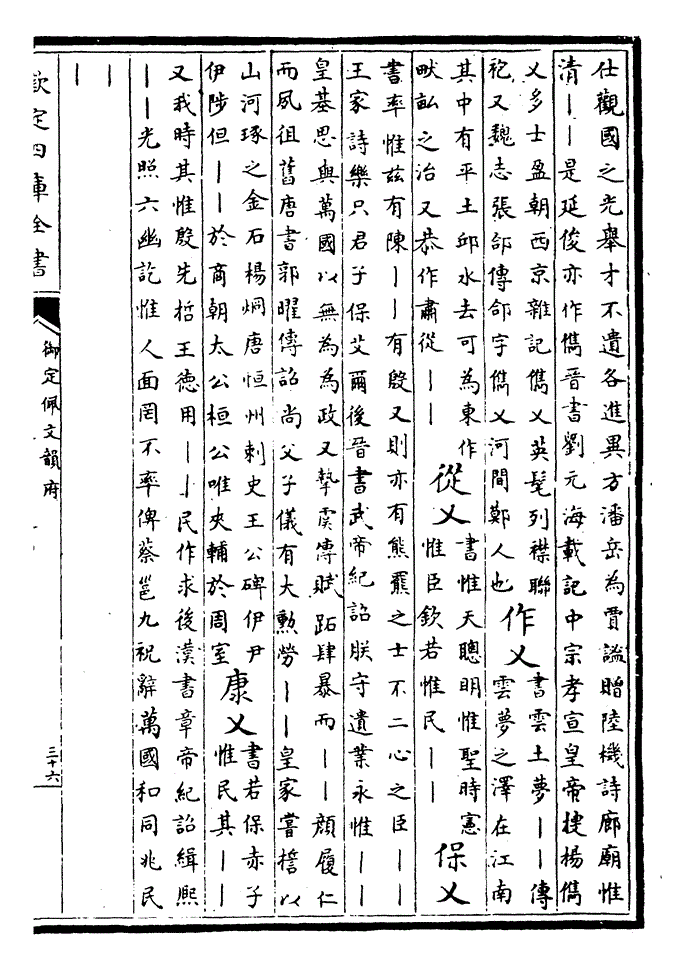 仕觀國之光舉才不遺各進異方潘岳為賈謐贈陸機詩廊廟惟
清丨丨是延俊亦作儁晉書劉元海載記中宗孝宣皇帝搜揚儁
乂多士盈朝西京雜記儁乂英髦列襟聯
袍又魏志張郃傳郃字儁乂河間鄭人也
作乂
書雲土夢丨丨傳
雲夢之澤在江南
其中有平土邱水去可為東作
畎畝之治又恭作肅從丨丨
從乂
書惟天聰明惟聖時憲
惟臣欽若惟民丨丨
保乂
書率惟茲有陳丨丨有殷又則亦有熊羆之士不二心之臣丨丨
王家詩樂只君子保艾爾後晉書武帝紀詔朕守遺業永惟丨丨
皇基思與萬國以無為為政又摯虞傳賦跖肆暴而丨丨顏履仁
而夙徂舊唐書郭曜傳詔尚父子儀有大勲勞丨丨皇家嘗誓以
山河琢之金石楊烱唐恒州刺史王公碑伊尹
伊陟但丨丨於商朝太公桓公唯夾輔於周室
康乂
書若保赤子
惟民其丨丨
又我時其惟殷先哲王德用丨丨民作求後漢書章帝紀詔緝熙
丨丨光照六幽訖惟人面罔不率俾蔡邕九祝辭萬國和同兆民
丨丨
欽定四庫全書
御定佩文韻府
三十六